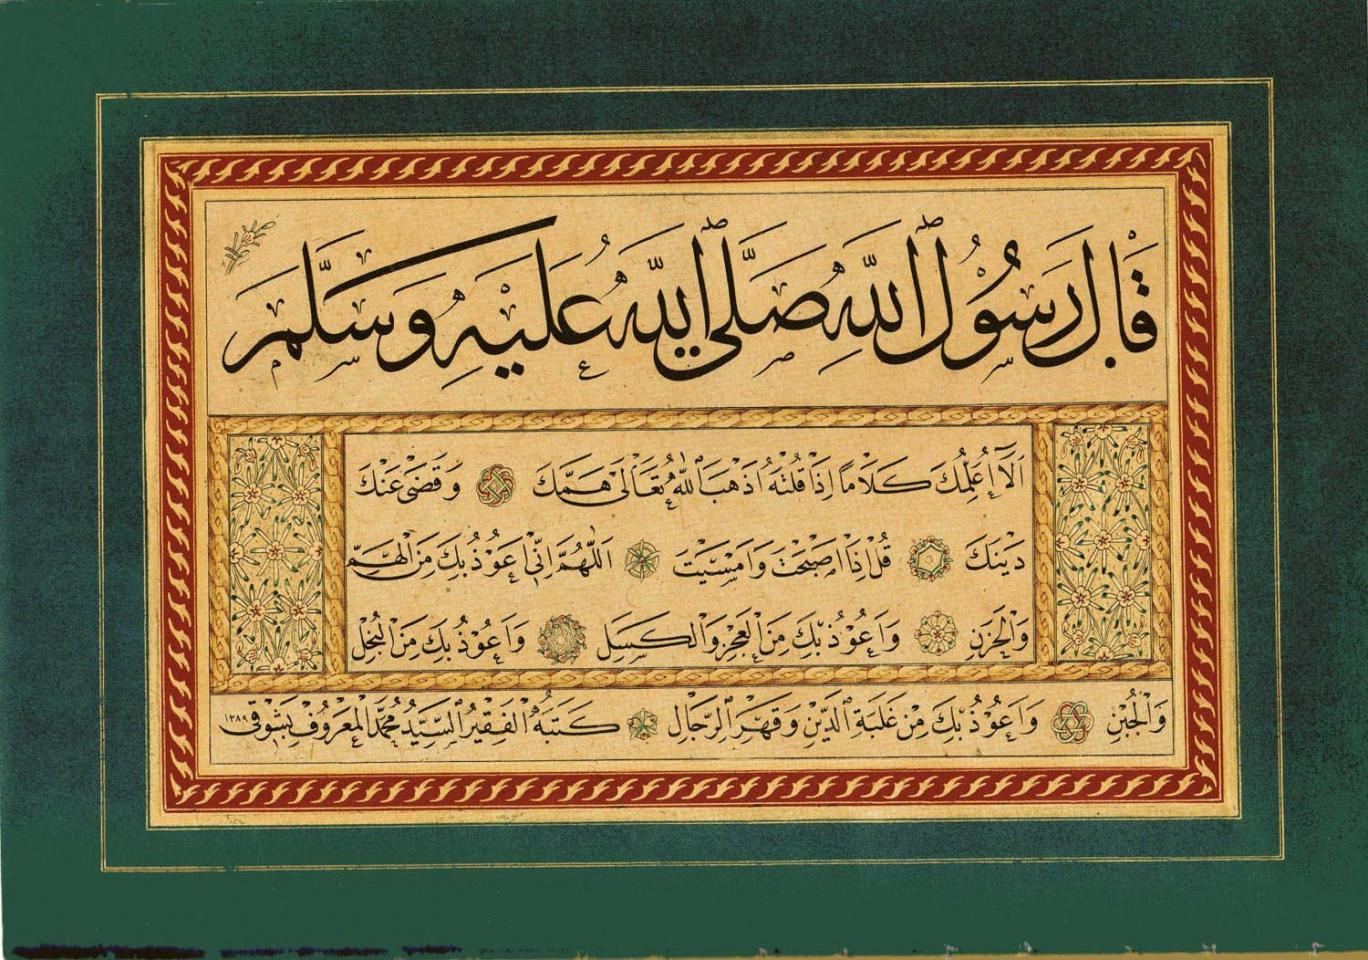 قَالَ رَسُولُ اللّٰهِ صَلَّى اللّٰهُ عَلَيْهِ وَسَلَّمَ
اَلَآ اُعَلِّمُكَ كَلَامًا اِذَا قُلْتَهُ اَذْهَبَ اللّٰهُ تَعَالٰى هَمَّكَ وَقَضٰى عَنْكَ
دَيْنَكَ قُلْ اِذَا اَصْبَحْتَ وَاَمْسَيْتَ اَللّٰهُمَّ اِنِّى اَعُوذُ بِكَ مِنَ الْهَمِّ
وَالْحَزَنِ وَاَعُوذُ بِكَ مِنَ الْعَجْزِ وَالْكَسَلِ وَاَعُوذُ بِكَ مِنَ الْبُخْلِ
وَالْجُبْنِ وَاَعُوذُ بِكَ مِنْ غَلَبَةِ الدَّيْنِ وَقَهْرِ الرِّجَالِ كَتَبَهُ الْفَقِيرُ السَّيِّدُ مُحَمَّدُ الْمَعْرُوفُ بِشَوْقِى ١٢٨٩